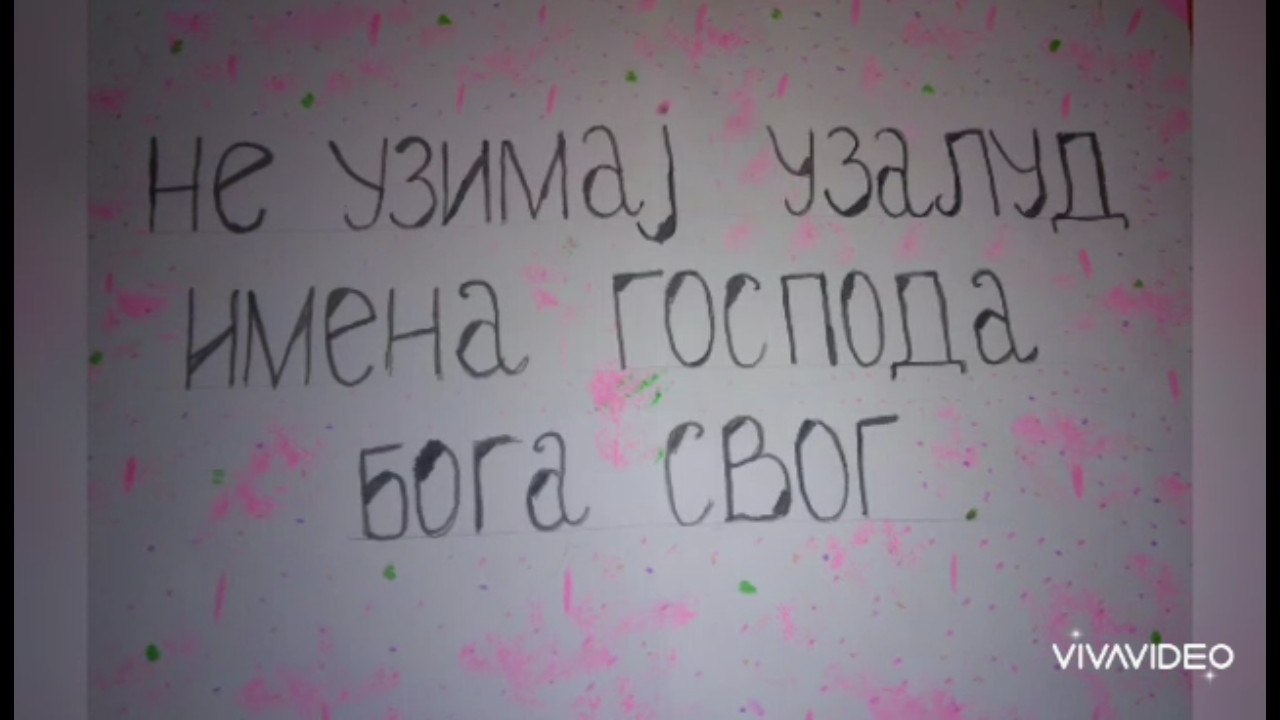 не узимај узалуд
имена господа
бога свог
VIVAVIDEO